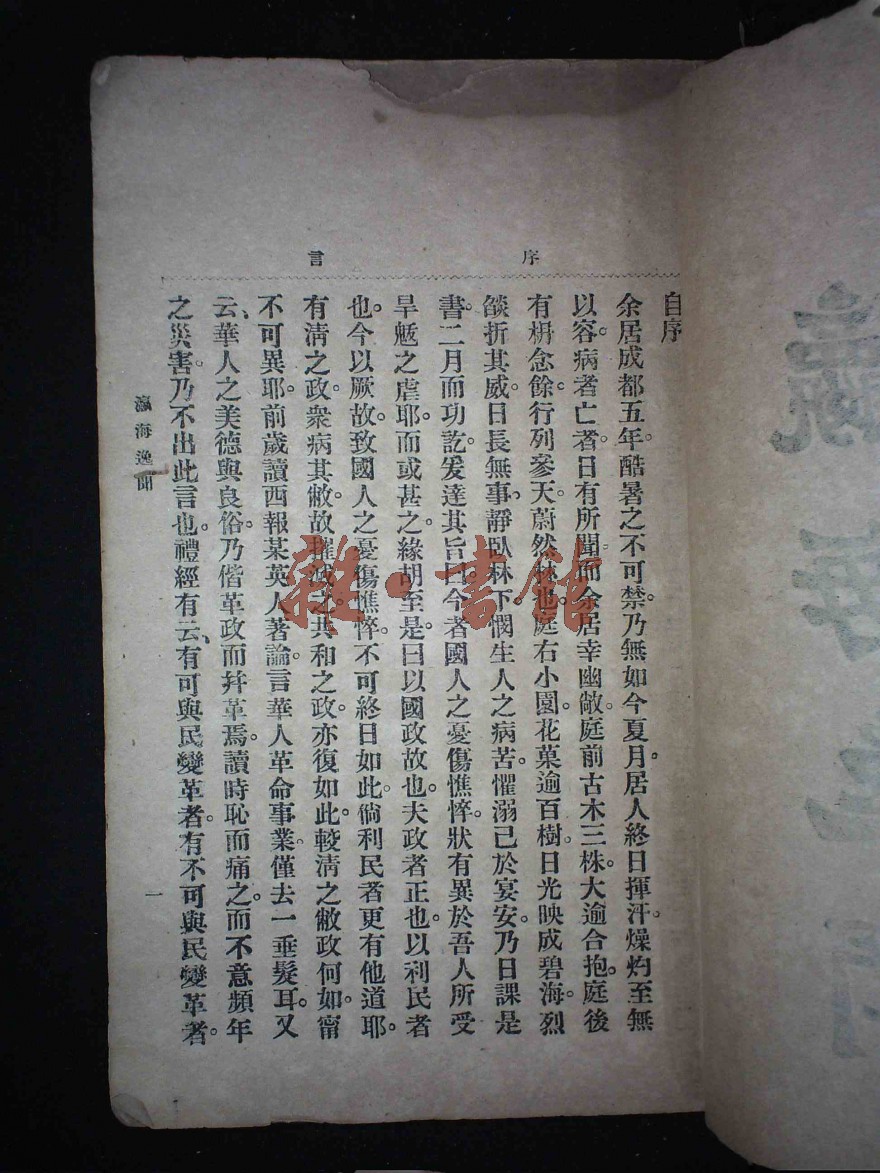 序言
自序
余居成都五年。酷暑之不可禁。乃無如今夏月。居人終日揮汗。燥灼至無
以容。病者亡者。日有所聞。而余居幸幽敞。庭前古木三株。大逾合抱。庭後
有枬念餘。行列參天。蔚然林也。庭右小園。花菓逾百樹。日光映成碧海。烈
燄折其威。日長無事。靜臥林下。憫生人之病苦。懼溺己於宴安。乃日課是
書。二月而功訖。爰達其旨曰。今者國人之憂傷憔悴。狀有異於吾人所受
旱魃之虐耶。而或甚之。緣胡至是。曰以國政故也。夫政者正也。以利民者
也。今以厥故。致國人之憂傷憔悴。不可終日如此。倘利民者更有他道耶。
有清之政。衆病其敝。故摧滅之。共和之政。亦復如此。較清之敝政何如。甯
不可異耶。前歲讀西報某英人著論。言華人革命事業。僅去一垂髮耳。又
云、華人之美德與良俗。乃偕革政而幷革焉。讀時恥而痛之。而不意頻年
之災害。乃不出此言也。禮經有云、有可與民變革者。有不可與民變革者。
瀛海逸聞
一
雜·書館